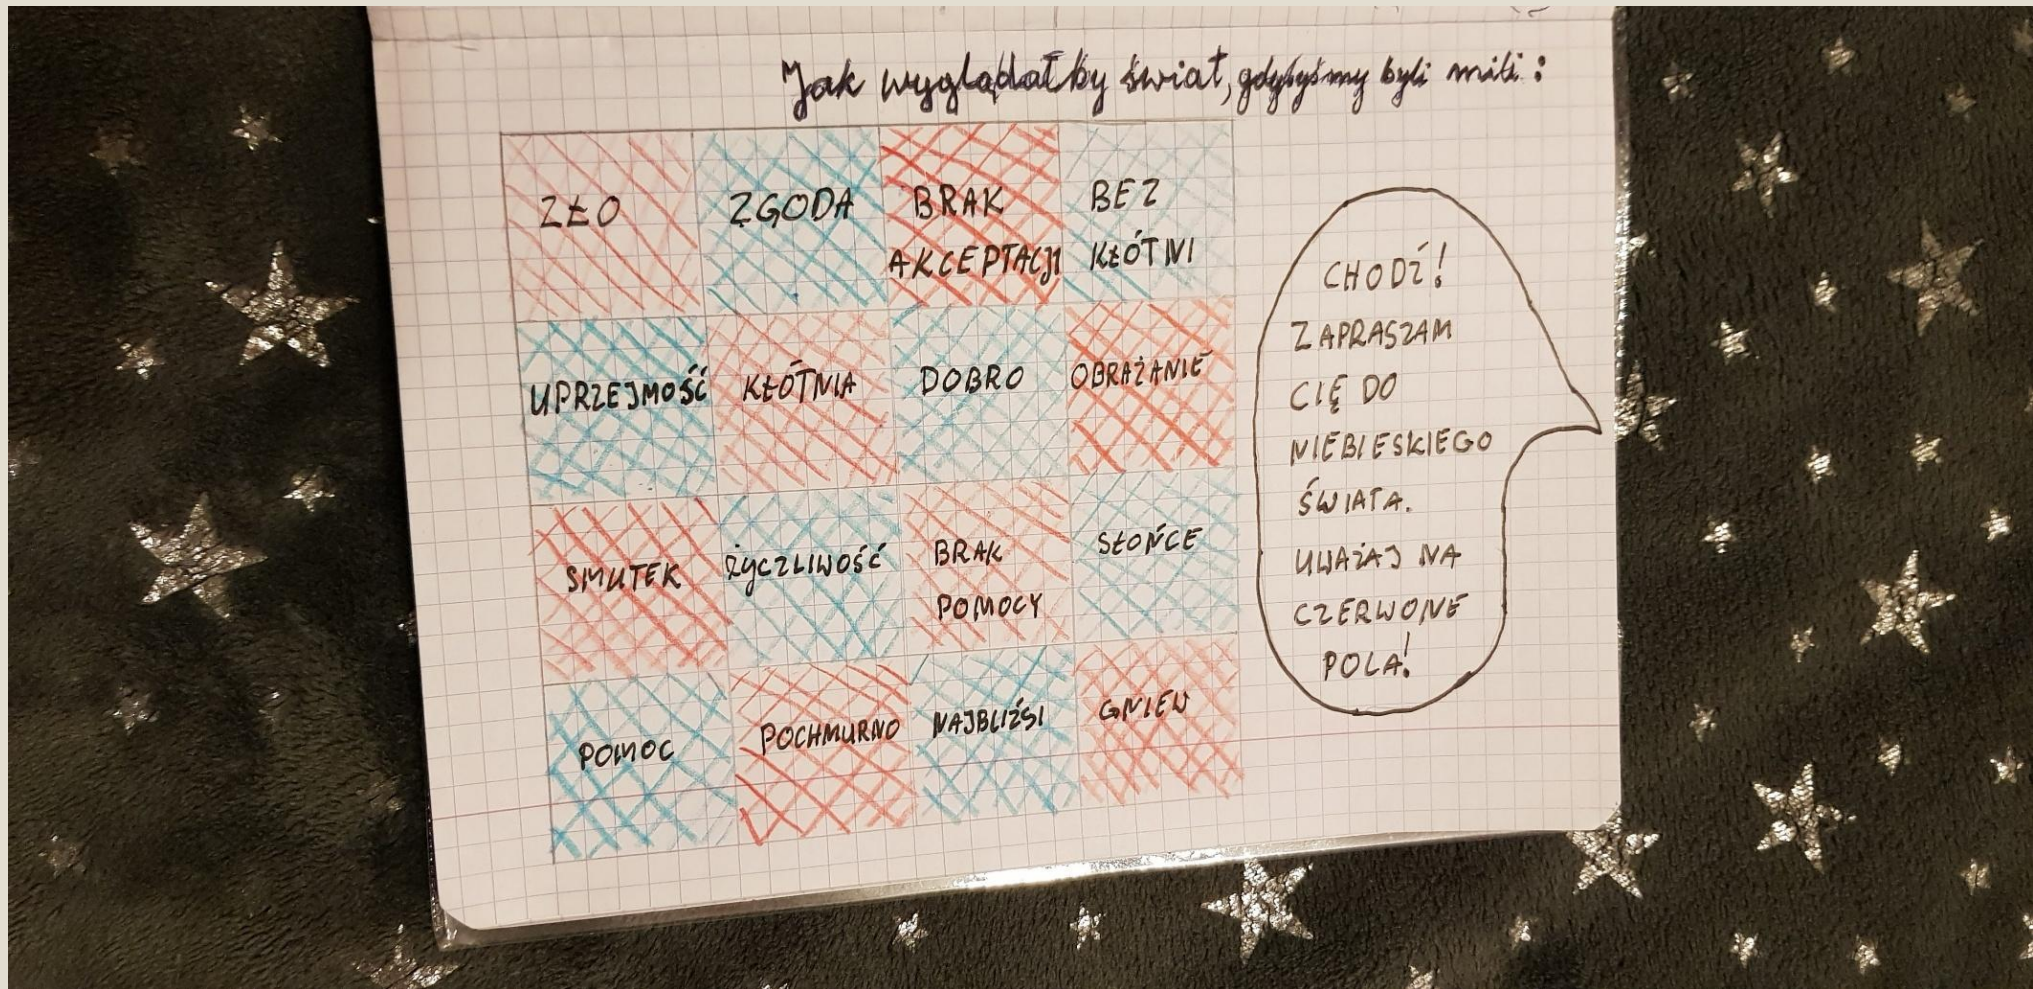 Jak wyglądałby świat, gdybyśmy byli mili:
ZŁO
ZGODA
BRAK
AKCEPTACJI
BEZ
KŁÓTNI
UPRZEJMOŚĆ
KŁÓTNIA
DOBRO
OBRAŻANIE
SMUTEK
ŻYCZLIWOŚĆ
BRAK
POMOCY
SŁOŃCE
POMOC
POCHMURNO
NAJBLIŻSI
GNIEW
CHODŹ!
ZAPRASZAM
CIĘ DO
NIEBIESKIEGO
ŚWIATA.
UWAŻAJ NA
CZERWONE
POLA!